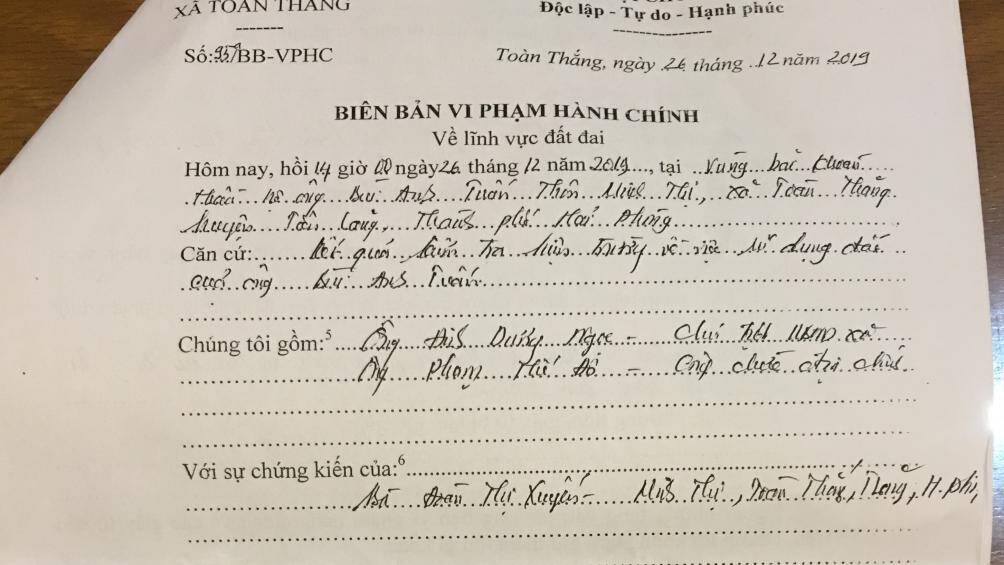 XÃ TOÀN THẮNG
Độc lập - Tự do - Hạnh phúc
Số: 957/BB-VPHC
Toàn Thắng, ngày 26 tháng 12 năm 2019
BIÊN BẢN VI PHẠM HÀNH CHÍNH
Về lĩnh vực đất đai
Hôm nay, hồi 14 giờ 00 ngày 26 tháng 12 năm 2019..., tại Vùng bắc khoán
thầu hộ ông Bùi Anh Tuấn Thôn Minh Thị, xã Toàn Thắng
huyện Tiên Lãng, Thành phố Hải Phòng
Căn cứ: Kết quả kiểm tra hiện trường về việc sử dụng đất
của ông Bùi Anh Tuấn
Chúng tôi gồm:5 Ông Đinh Dương Ngọc - Chủ tịch UBND xã
Ông Phạm Thế Đô - Công chức địa chính
Với sự chứng kiến của:6
Bà Trần Thị Xuyến - Minh Thị, Toàn Thắng, T Lãng, H. Phòng